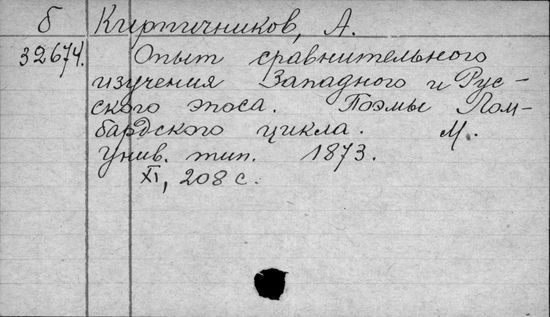 б Кирпичников, А.
32674. Опыт сравнительного
изучения Западного и Рус-
ского эпоса. Поэмы Лом-
бардского цикла. М.
Унив. тип. 1873.
XI, 208 с.